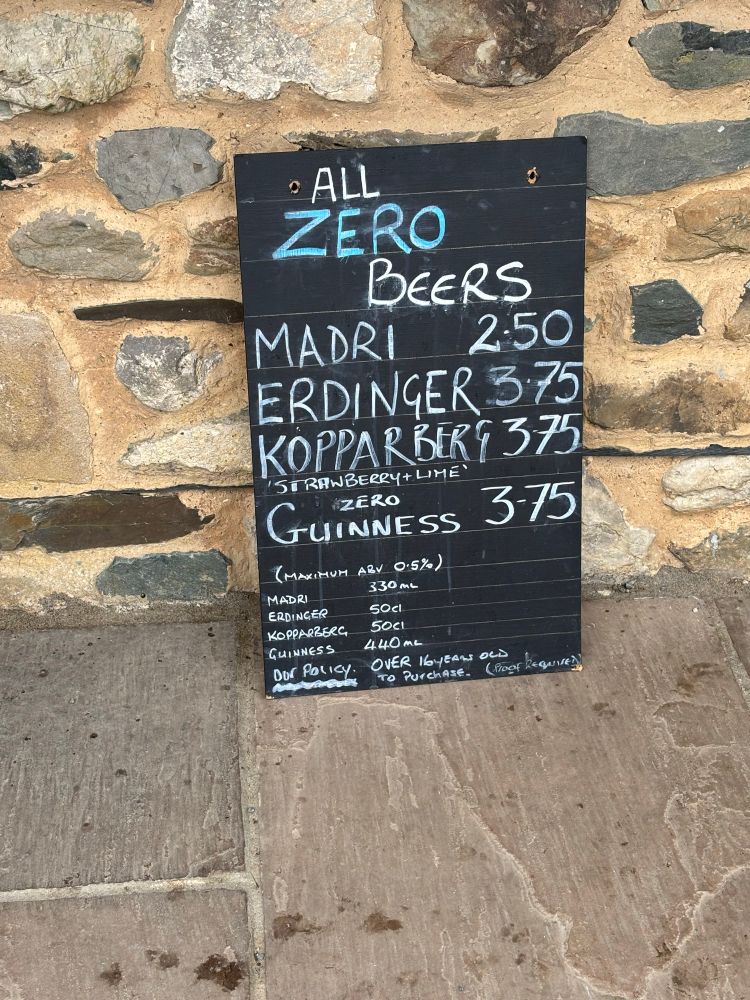 ALL
ZERO
BEERS
MADRI 2.50
ERDINGER 3.75
KOPPARBERG 3.75
'STRAWBERRY + LIME'
ZERO
GUINNESS 3-75
(MAXIMUM ABV 0.5%)
MADRI 330ML
ERDINGER 50cl
KOPPARBERG 50cl
GUINNESS 440ML
OUR POLICY. OVER 16 YEARS OLD
TO PURCHASE. (PROOF REQUIRED)